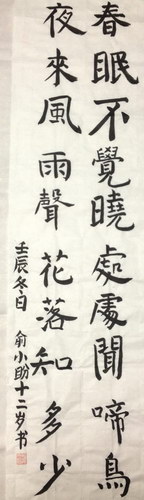 春眠不覺曉處處聞啼鳥
夜來風雨聲花落知多少
壬辰冬日 俞小盼十二岁书